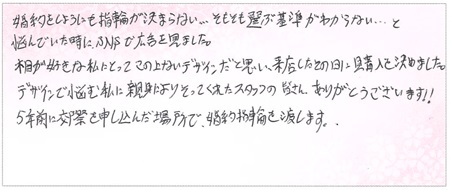 婚約をしようにも指輪が決まらない...そもそも選ぶ基準がわからない...と
悩んでいた時に、SNSで広告を見ました。
桜が好きな私にとってこの上ないデザインだと思い、来店したその日に購入を決めました。
デザインで悩む私に親身によりそってくれたスタッフの皆さん、ありがとうございます!!
5年前に交際を申し込んだ場所で、婚約指輪を渡します。